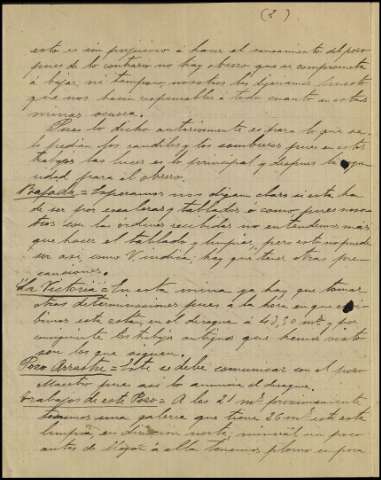 (2)
esto es sin perjuicio á hacer el saneamiento del pozo
pues de lo contrario no hay obrero que se comprometa
á bajar, ni tampoco nosotros les dejaríamos puesto
que nos hacen responsables á todo cuanto en estas
minas ocurra.
Pues lo dicho anteriormente es para lo que se
le pedían los candiles y los sombreros pues en estos
trabajos las luces es lo principal y despues la segu-
ridad para el obrero.
Bajada = Esperamos nos digan claro si esta ha
de ser por escaleras y tablados ó como pues noso-
tros con las ordenes recibidas no entendemos mas
que hacer el tablado y limpiar, pero esto no puede
ser asi, como V indica; hay que tener otras pre-
cauciones.
La Victoria = En esta mina ya hay que tomar
otras determinaciones pues a la hora en que escri-
bimos esta están en el desagüe á 43,20 mts y por
consiguiente los trabajos antiguos que hemos visto
son los que siguen.
Pozo Arrastre = Este se debe comunicar con el pozo
Maestro pues asi lo anuncia el desague.
Trabajos de este Pozo = A los 21 ms proximamente
tenemos una galeria que tiene 26 ms esta esta
limpia, en direccion norte; mineral un poco
antes de llegar á ella tenemos plomo en poca